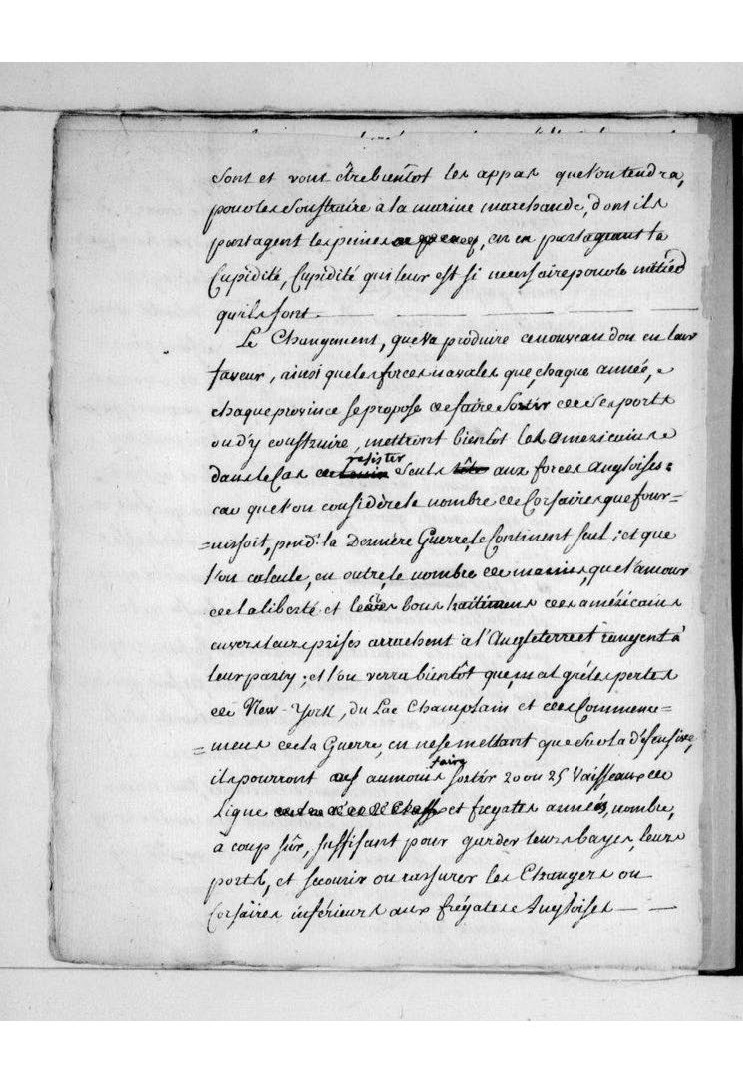 sont et vont être bientôt les appas que l'on tendra,
pour les soustraire à la marine marchande, dont ils
partagent les peines, en en partageant la
Cupidité, Cupidité qui leur est si necessaire pour le métier
qu'ils font.
Le Changement, que va produire ce nouveau don en leur
faveur, ainsi que les forces navales que, chaque année,
chaque province se propose de faire sortir de ses ports
ou d'y construire, mettront bientôt les américains
dans le Cas de resister seuls aux forces Angloises:
car que l'on considère le nombre de Corsaires que four=
=nissoit, pend.t la Dernière Guerre, le Continent seul; et que
l'on calcule, en outre, le nombre de marins, que l'amour
de la liberté et les bons traitemens des américains
envers leurs prises arrachent à l'Angleterre et rangent à
leur party; et l'on verra bientôt que, malgré les pertes
de New-York, du Lac Champlain et des Commence=
=mens de la Guerre, en ne se mettant que sur la défensive,
ils pourront au moins faire sortir 20 ou 25 Vaisseaux de
Ligne et fregates armées, nombre,
à coup sûr, suffisant pour garder leurs bayes, leurs
ports, et secourir ou rassurer les Changers ou
Corsaires inférieurs aux frégates Angloises